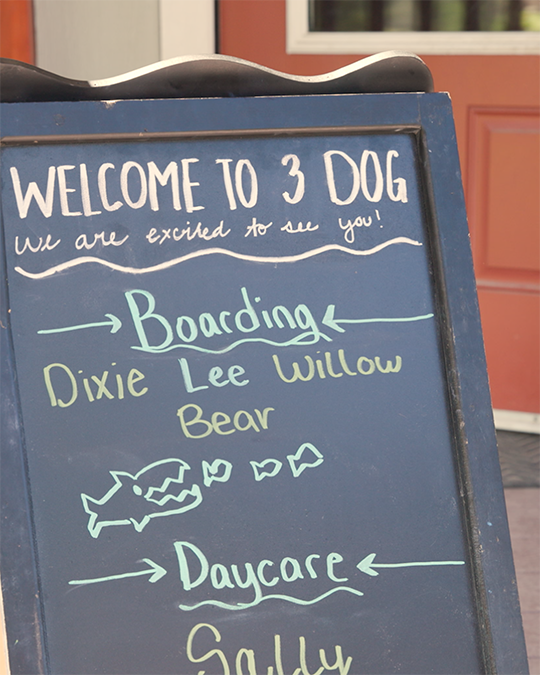 WELCOME TO 3 DOG
We are excited to see you!
Boarding
Dixie Lee Willow
Bear
Daycare
Sally